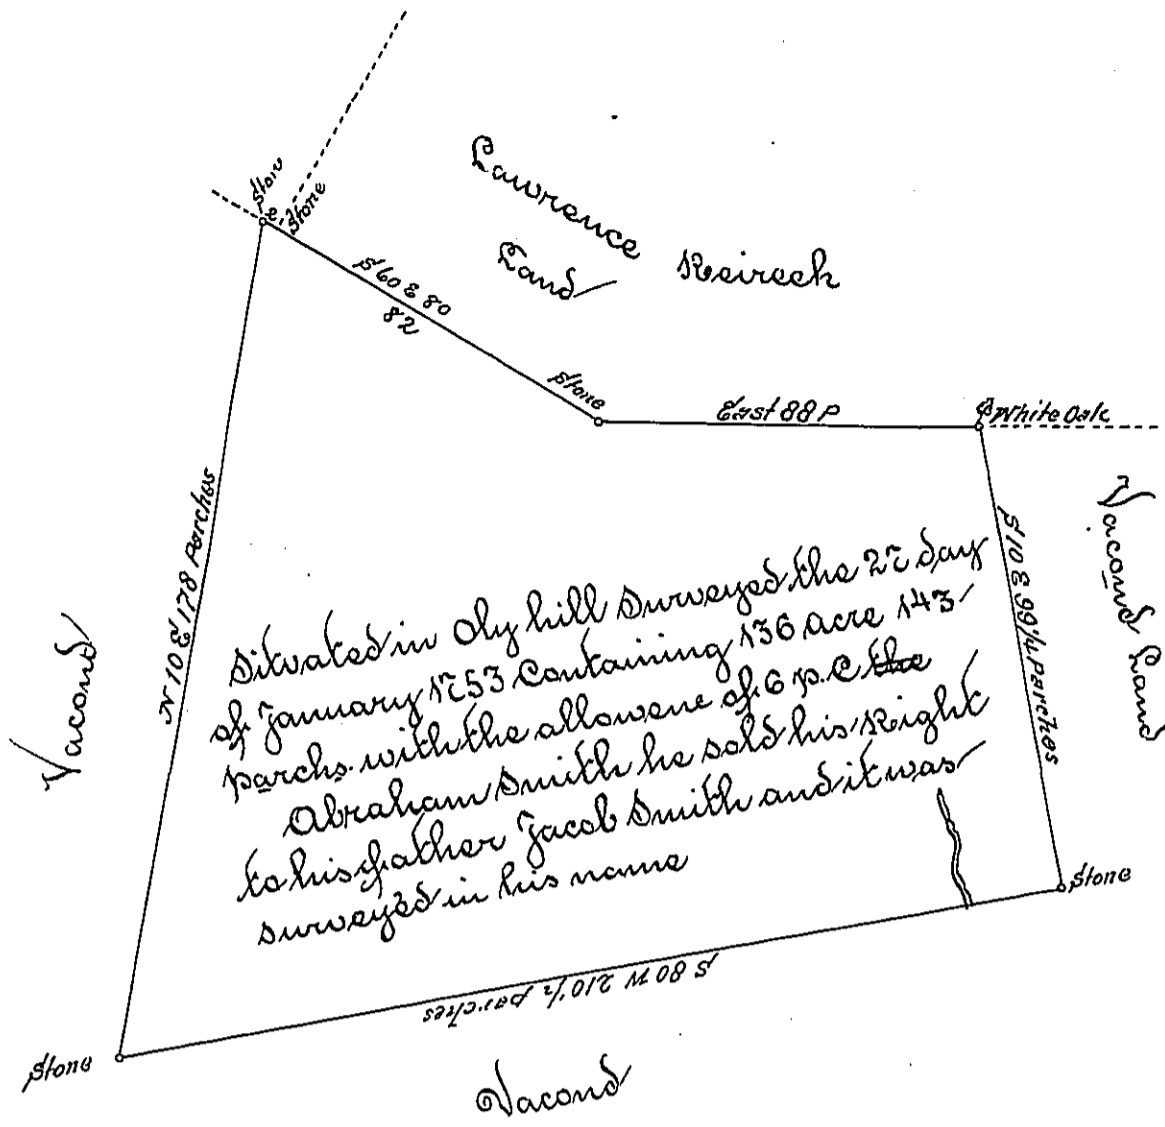 Stone
Stone
Lawrence Reireck
Land
S 60 E 80
82
Stone
East 88 P
White Oak
N 10 E 178 Parches
S 10 E 99 1/4 Parches
Vacond
Vacond Land
Situated in Oly hill Surveyed the 27 day
of January 1753 Containing 136 acre 143
parchs. with the allowene of 6 p. C the
Abraham Smith he sold his Right
to his father Jacob Smith and it was
surveyed in his name
Stone
S 80 W 210 1/2 parches
Stone
Vacond